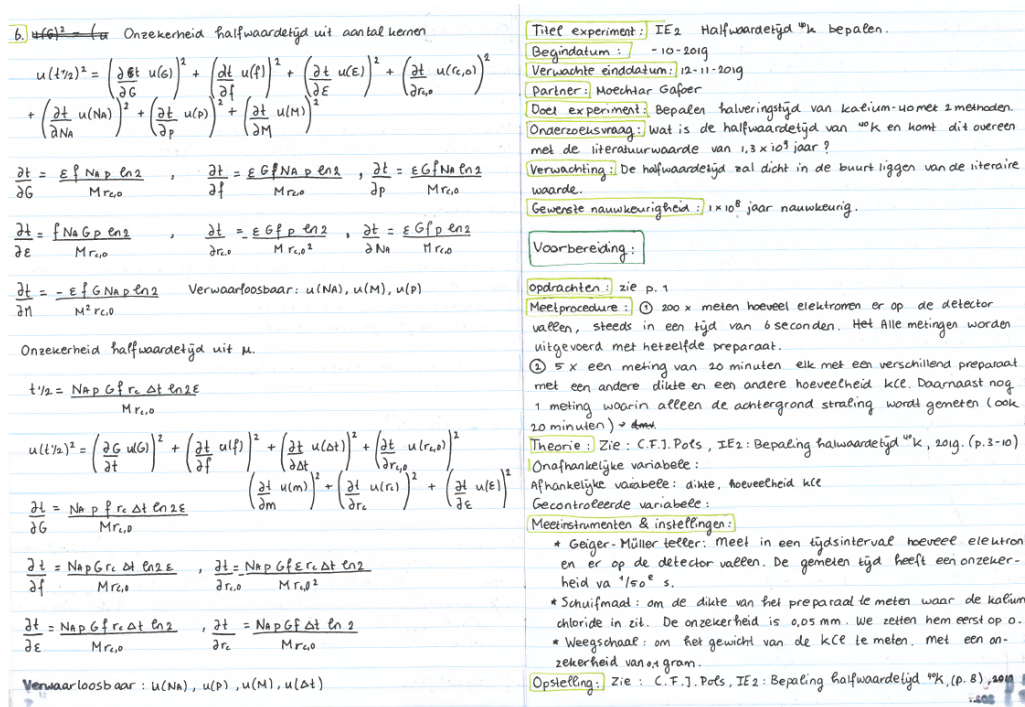 6. u(G)² = (u Onzekerheid halfwaardetijd uit aantal kernen
u(t½)² = (∂t/∂G u(G))² + (∂t/∂f u(f))² + (∂t/∂ε u(ε))² + (∂t/∂rc,0 u(rc,0))²
+ (∂t/∂NA u(NA))² + (∂t/∂p u(p))² + (∂t/∂M u(M))²
∂t/∂G = ε f NA p ln2 / M rc,0 , ∂t/∂f = ε G f NA p ln2 / M rc,0 , ∂t/∂p = ε G f NA ln2 / M rc,0
∂t/∂ε = f NA G p ln2 / M rc,0 , ∂t/∂rc,0 = - ε G f p ln2 / M rc,0² , ∂t/∂NA = ε G f p ln2 / M rc,0
∂t/∂M = - ε f G NA p ln2 / M² rc,0 Verwaarloosbaar: u(NA), u(M), u(p)
Onzekerheid halfwaardetijd uit μ.
t½ = NA p G f rc Δt ln2 ε / M rc,0
u(t½)² = (∂G/∂t u(G))² + (∂t/∂f u(f))² + (∂t/∂Δt u(Δt))² + (∂t/∂rc,0 u(rc,0))²
(∂t/∂m u(m))² + (∂t/∂rc u(rc))² + (∂t/∂ε u(ε))²
∂t/∂G = NA p f rc Δt ln2 ε / M rc,0
∂t/∂f = NA p G rc Δt ln2 ε / M rc,0 , ∂t/∂rc,0 = - NA p G f ε rc Δt ln2 / M rc,0²
∂t/∂ε = NA p G f rc Δt ln2 / M rc,0 , ∂t/∂rc = NA p G f Δt ln 2 / M rc,0
Verwaarloosbaar : u(NA), u(p), u(M), u(Δt)
Titel experiment: IE2 Halfwaardetijd ⁴⁰K bepalen.
Begindatum : -10-2019
Verwachte einddatum: 12-11-2019
Partner: Moechtar Gafoer
Doel experiment: Bepalen halveringstijd van kalium-40 met 2 methoden.
Onderzoeksvraag: Wat is de halfwaardetijd van ⁴⁰K en komt dit overeen
met de literatuurwaarde van 1,3 x 10⁹ jaar ?
Verwachting: De halfwaardetijd zal dicht in de buurt liggen van de literaire
waarde.
Gewenste nauwkeurigheid : 1 x 10⁸ jaar nauwkeurig.
Voorbereiding :
opdrachten : zie p. 1
Meetprocedure : ① 200 x meten hoeveel elektronen er op de detector
vallen, steeds in een tijd van 6 seconden. Het Alle metingen worden
uitgevoerd met hetzelfde preparaat.
② 5 x een meting van 20 minuten elk met een verschillend preparaat
met een andere dikte en een andere hoeveelheid kCl. Daarnaast nog
1 meting waarin alleen de achtergrond straling wordt gemeten (ook
20 minuten)
Theorie : Zie : C.F.J. Pols, IE2 : Bepaling halwaardetijd ⁴⁰K, 2019. (p.3-10)
Onafhankelijke variabele :
Afhankelijke variabele : dikte, hoeveelheid kCl
Gecontroleerde variabele :
Meetinstrumenten & instellingen :
* Geiger-Müller teller: Meet in een tijdsinterval hoeveel elektron
en er op de detector vallen. De gemeten tijd heeft een onzeker-
heid va 1/50ᵉ s.
* Schuifmaat : om de dikte van het preparaat te meten waar de kalium
chloride in zit. De onzekerheid is 0,05 mm. We zetten hem eerst op 0.
* Weegschaal : om het gewicht van de kCl te meten, met een on-
zekerheid van 0,1 gram.
Opstelling : Zie : C.F.J. Pols, IE2 : Bepaling halfwaardetijd ⁴⁰K, (p. 8), 2019